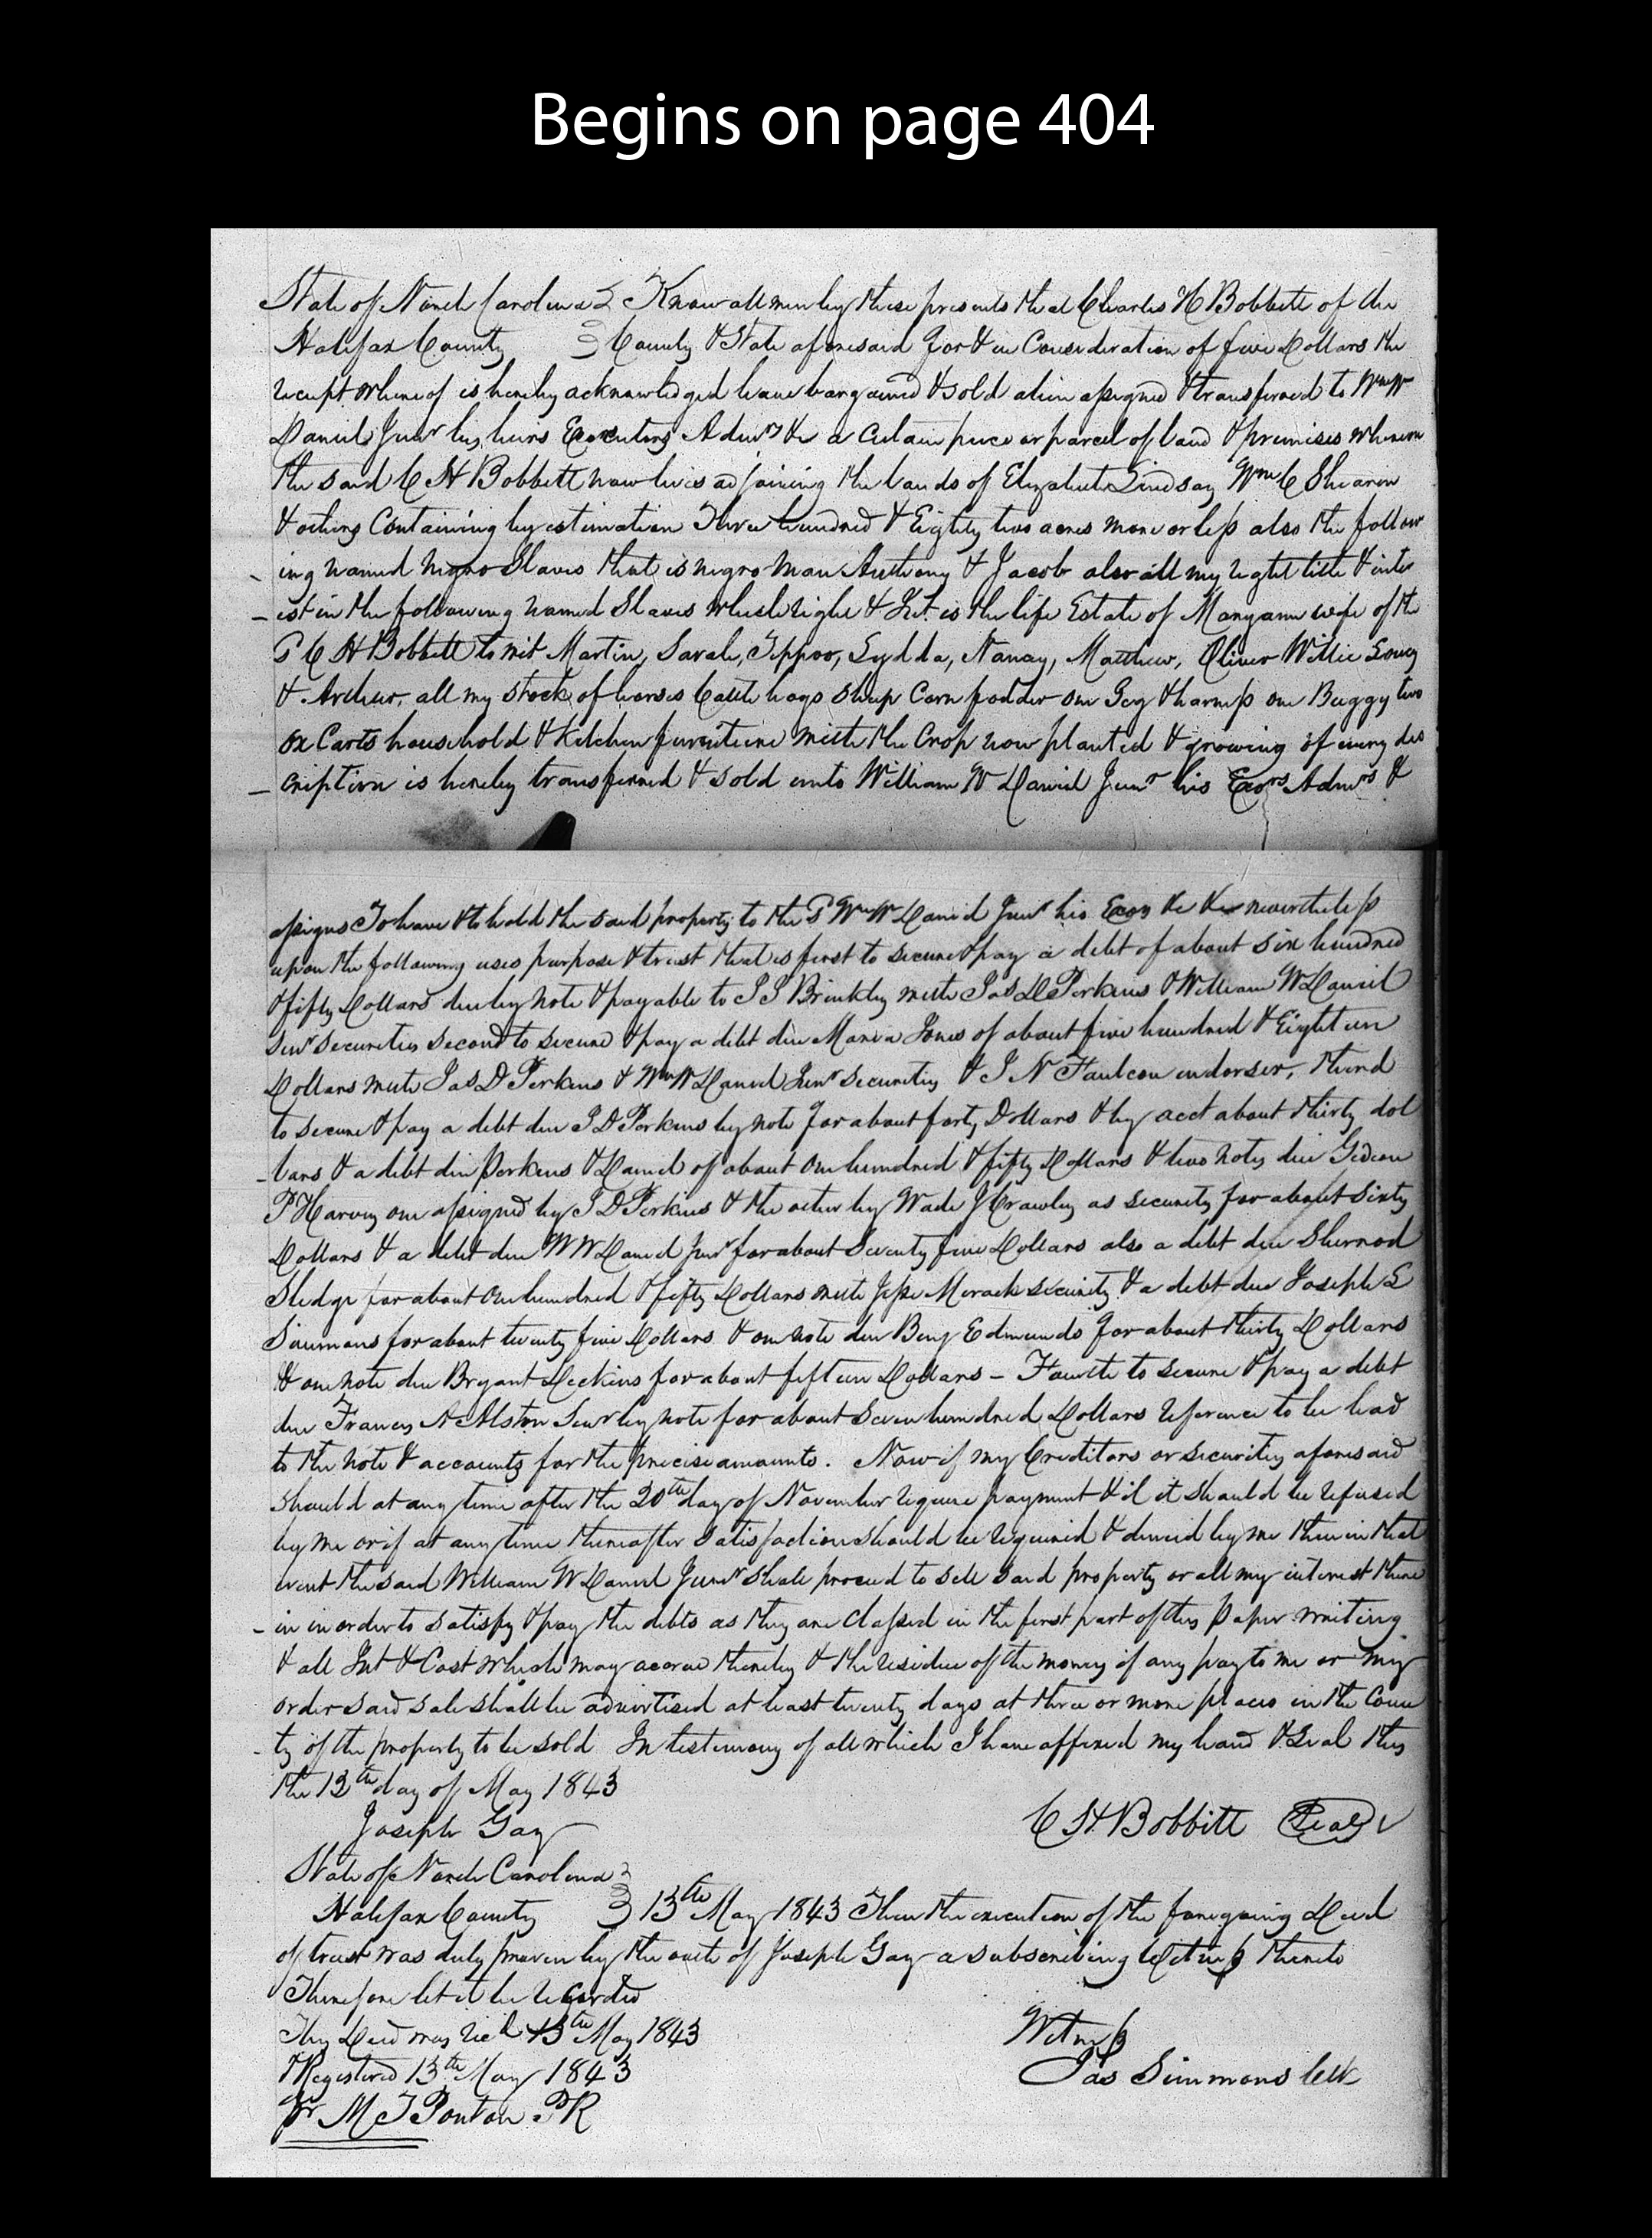 Begins on page 404
State of North Carolina } Know all men by these presents that Charles H Bobbitt of the
Halifax County } County & State aforesaid for & in Consideration of five Dollars the
receipt whereof is hereby acknowledged have bargained & sold alien assigned & transferred to Wm W
Daniel Junr his heirs Executors Admrs &c a certain piece or parcel of land & premises whereon
the said C H Bobbitt now lives adjoining the lands of Elizabeth Lindsay Wm C Shearin
& others Containing by estimation Three hundred & Eighty two acres more or less also the follow
ing named negro Slaves that is negro man Anthony & Jacob also all my right title & inter
- est in the following named Slaves which right & Int. is the life Estate of Maryann wife of the
S C H Bobbitt to wit Martin, Sarah, Tippoo, Lydda, Nancy, Matthew, Oliver Willie Louey
& Archer, all my stock of horses Cattle hogs sheep Corn fodder one Gig & harness one Buggy two
ox Carts household & Kitchen furniture with the Crop now planted & growing of every des
- cription is hereby transferred & sold unto William W Daniel Junr his Exors Admrs &
assigns To have & to hold the said property to the S Wm W Daniel Junr his Exors &c &c nevertheless
upon the following uses purpose & trust that is first to secure & pay a debt of about six hundred
& fifty Dollars due by note & payable to J J Brinkley with Jas D Perkins & William W Daniel
Junr securities second to secure & pay a debt due Maria Jones of about five hundred & Eighteen
Dollars with Jas D Perkins & Wm W Daniel Junr securities & J N Faulcon endorser, third
to secure & pay a debt due J D Perkins by note for about forty Dollars & by acct about thirty dol
- lars & a debt due Perkins & Daniel of about One hundred & fifty Dollars & two notes due Gideon
P Harvey one assigned by J D Perkins & the other by Wade J Crawley as security for about sixty
Dollars & a debt due W W Daniel Junr for about Seventy five Dollars also a debt due Sherrod
Sledge for about One hundred & fifty Dollars with Jesse security & a debt due Joseph L
Simmons for about twenty five Dollars & one note due Benj Edmunds for about thirty Dollars
& one note due Bryant for about fifteen Dollars - Fourth to secure & pay a debt
due Francis A Alston Senr by note for about Seven hundred Dollars reference to be had
to the note & accounts for the precise amounts. Now if my Creditors or securities aforesaid
should at any time after the 20th day of November require payment & if it should be refused
by me or if at any time thereafter satisfaction should be required & denied by me then in that
event the said William W Daniel Junr shall proceed to sell said property or all my interest there
- in in order to satisfy & pay the debts as they are classed in the first part of this paper writing
& all Int & Cost which may accrue thereby & the residue of the money if any pay to me or my
order said sale shall be advertised at least twenty days at three or more places in the Coun
- ty of the property to be sold In testimony of all which I have affixed my hand & Seal this
the 13th day of May 1843
Joseph Gay C H Bobbitt Seal
State of North Carolina }
Halifax County } 13th May 1843 Then the execution of the foregoing Deed
of trust was duly proven by the oath of Joseph Gay a subscribing Witness thereto
Therefore let it be recorded
This Deed was recd 13th May 1843 Witness
& Registered 13th May 1843 Jas Simmons Clk
Pr M T Ponton PR